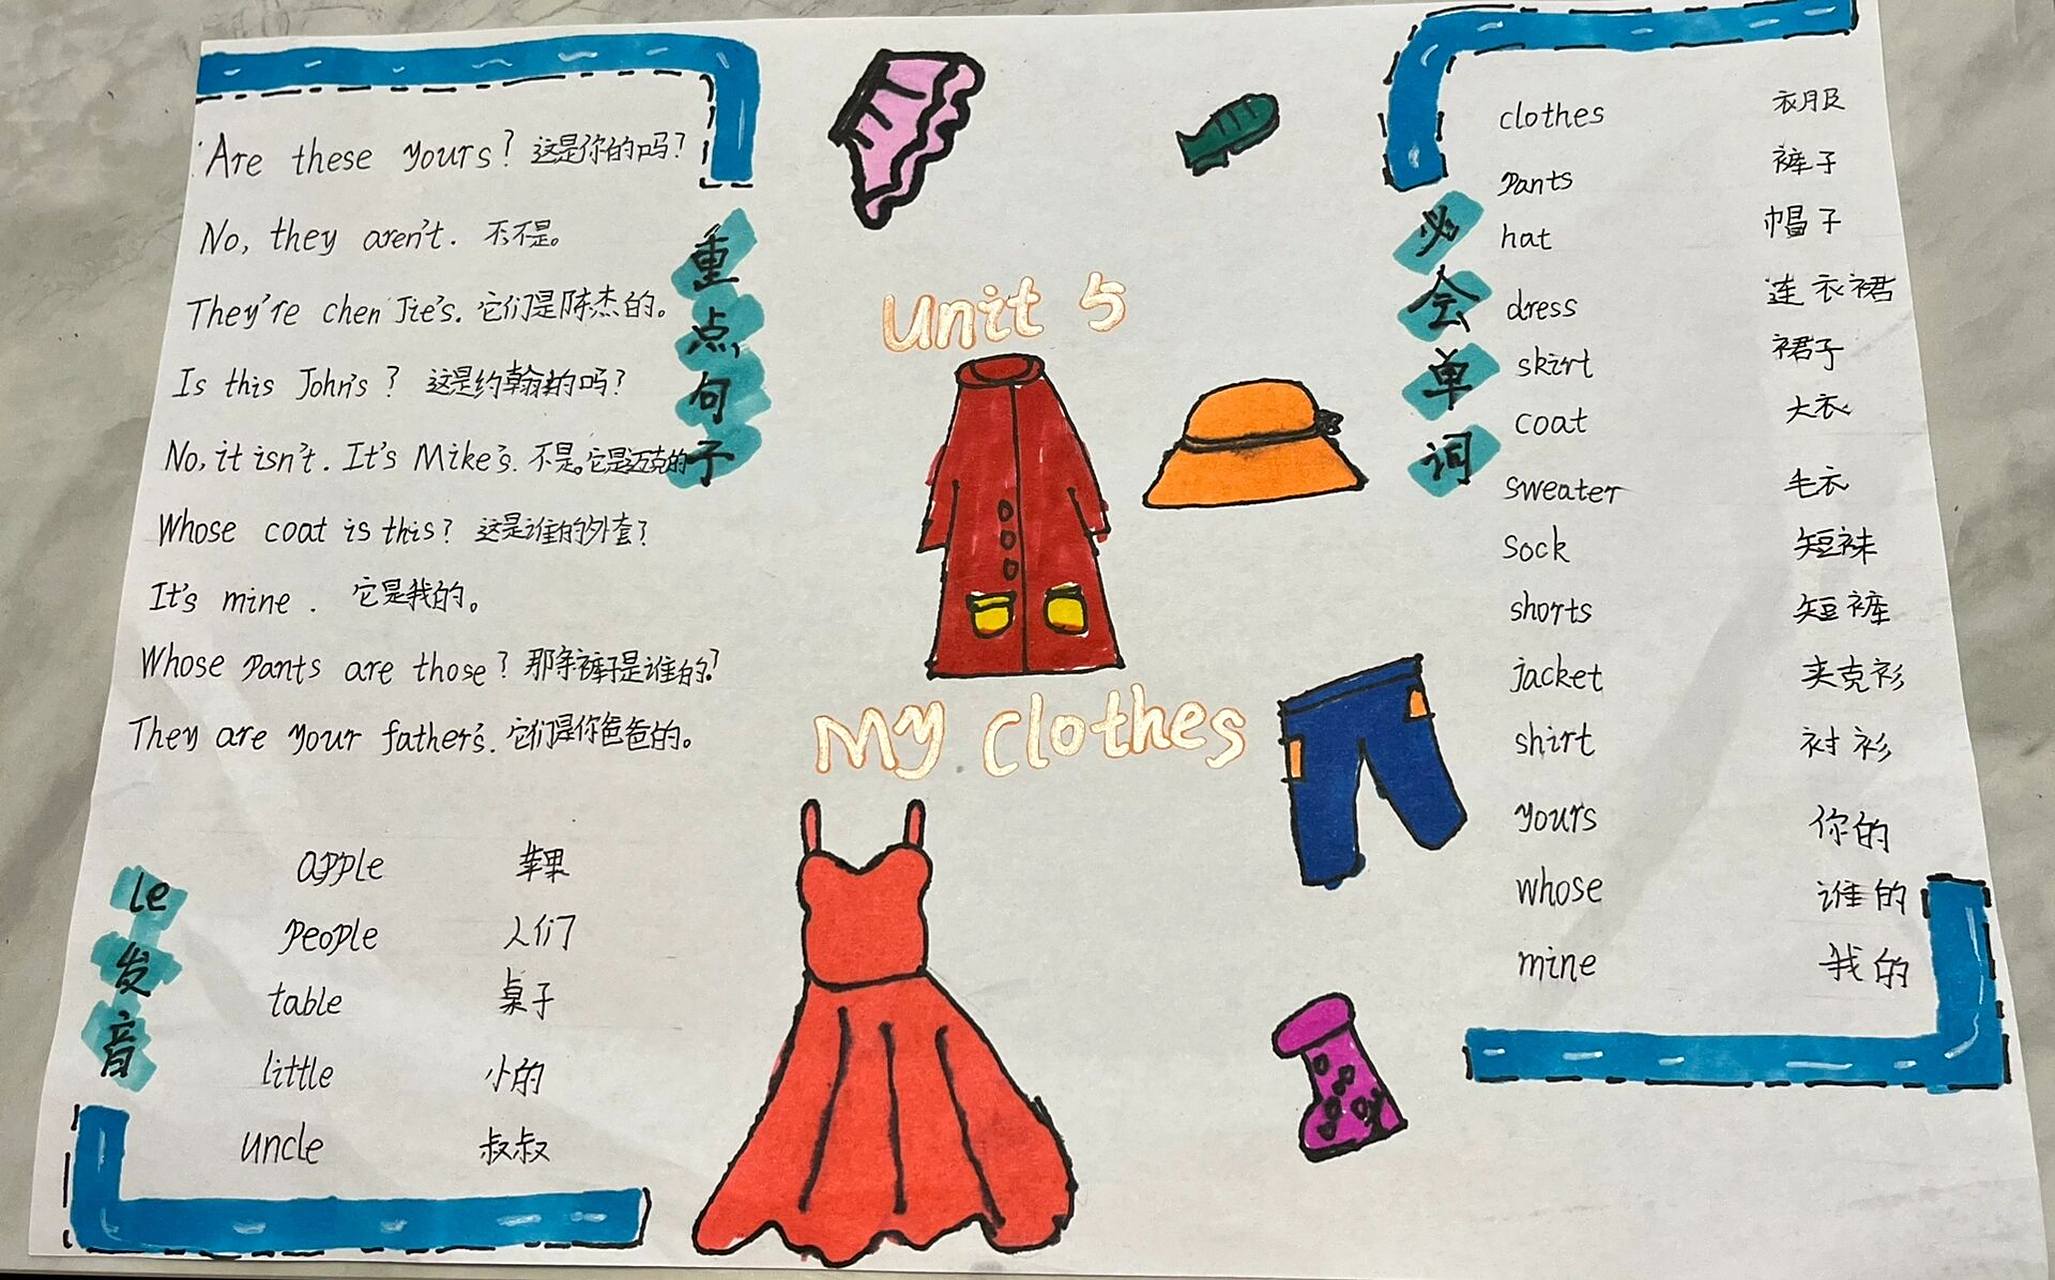 Are these yours? 这是你的吗?
No, they aren't. 不,不是。
They're chen Jie's. 它们是陈杰的。
Is this John's? 这是约翰的吗?
No, it isn't. It's Mike's. 不是。它是迈克的
Whose coat is this? 这是谁的外套?
It's mine. 它是我的。
Whose pants are those? 那条裤子是谁的?
They are your father's. 它们是你爸爸的。
重点句子
le发音
apple 苹果
people 人们
table 桌子
little 小的
uncle 叔叔
Unit 5
My clothes
必会单词
clothes 衣服
pants 裤子
hat 帽子
dress 连衣裙
skirt 裙子
coat 大衣
sweater 毛衣
sock 短袜
shorts 短裤
jacket 夹克衫
shirt 衬衫
yours 你的
whose 谁的
mine 我的